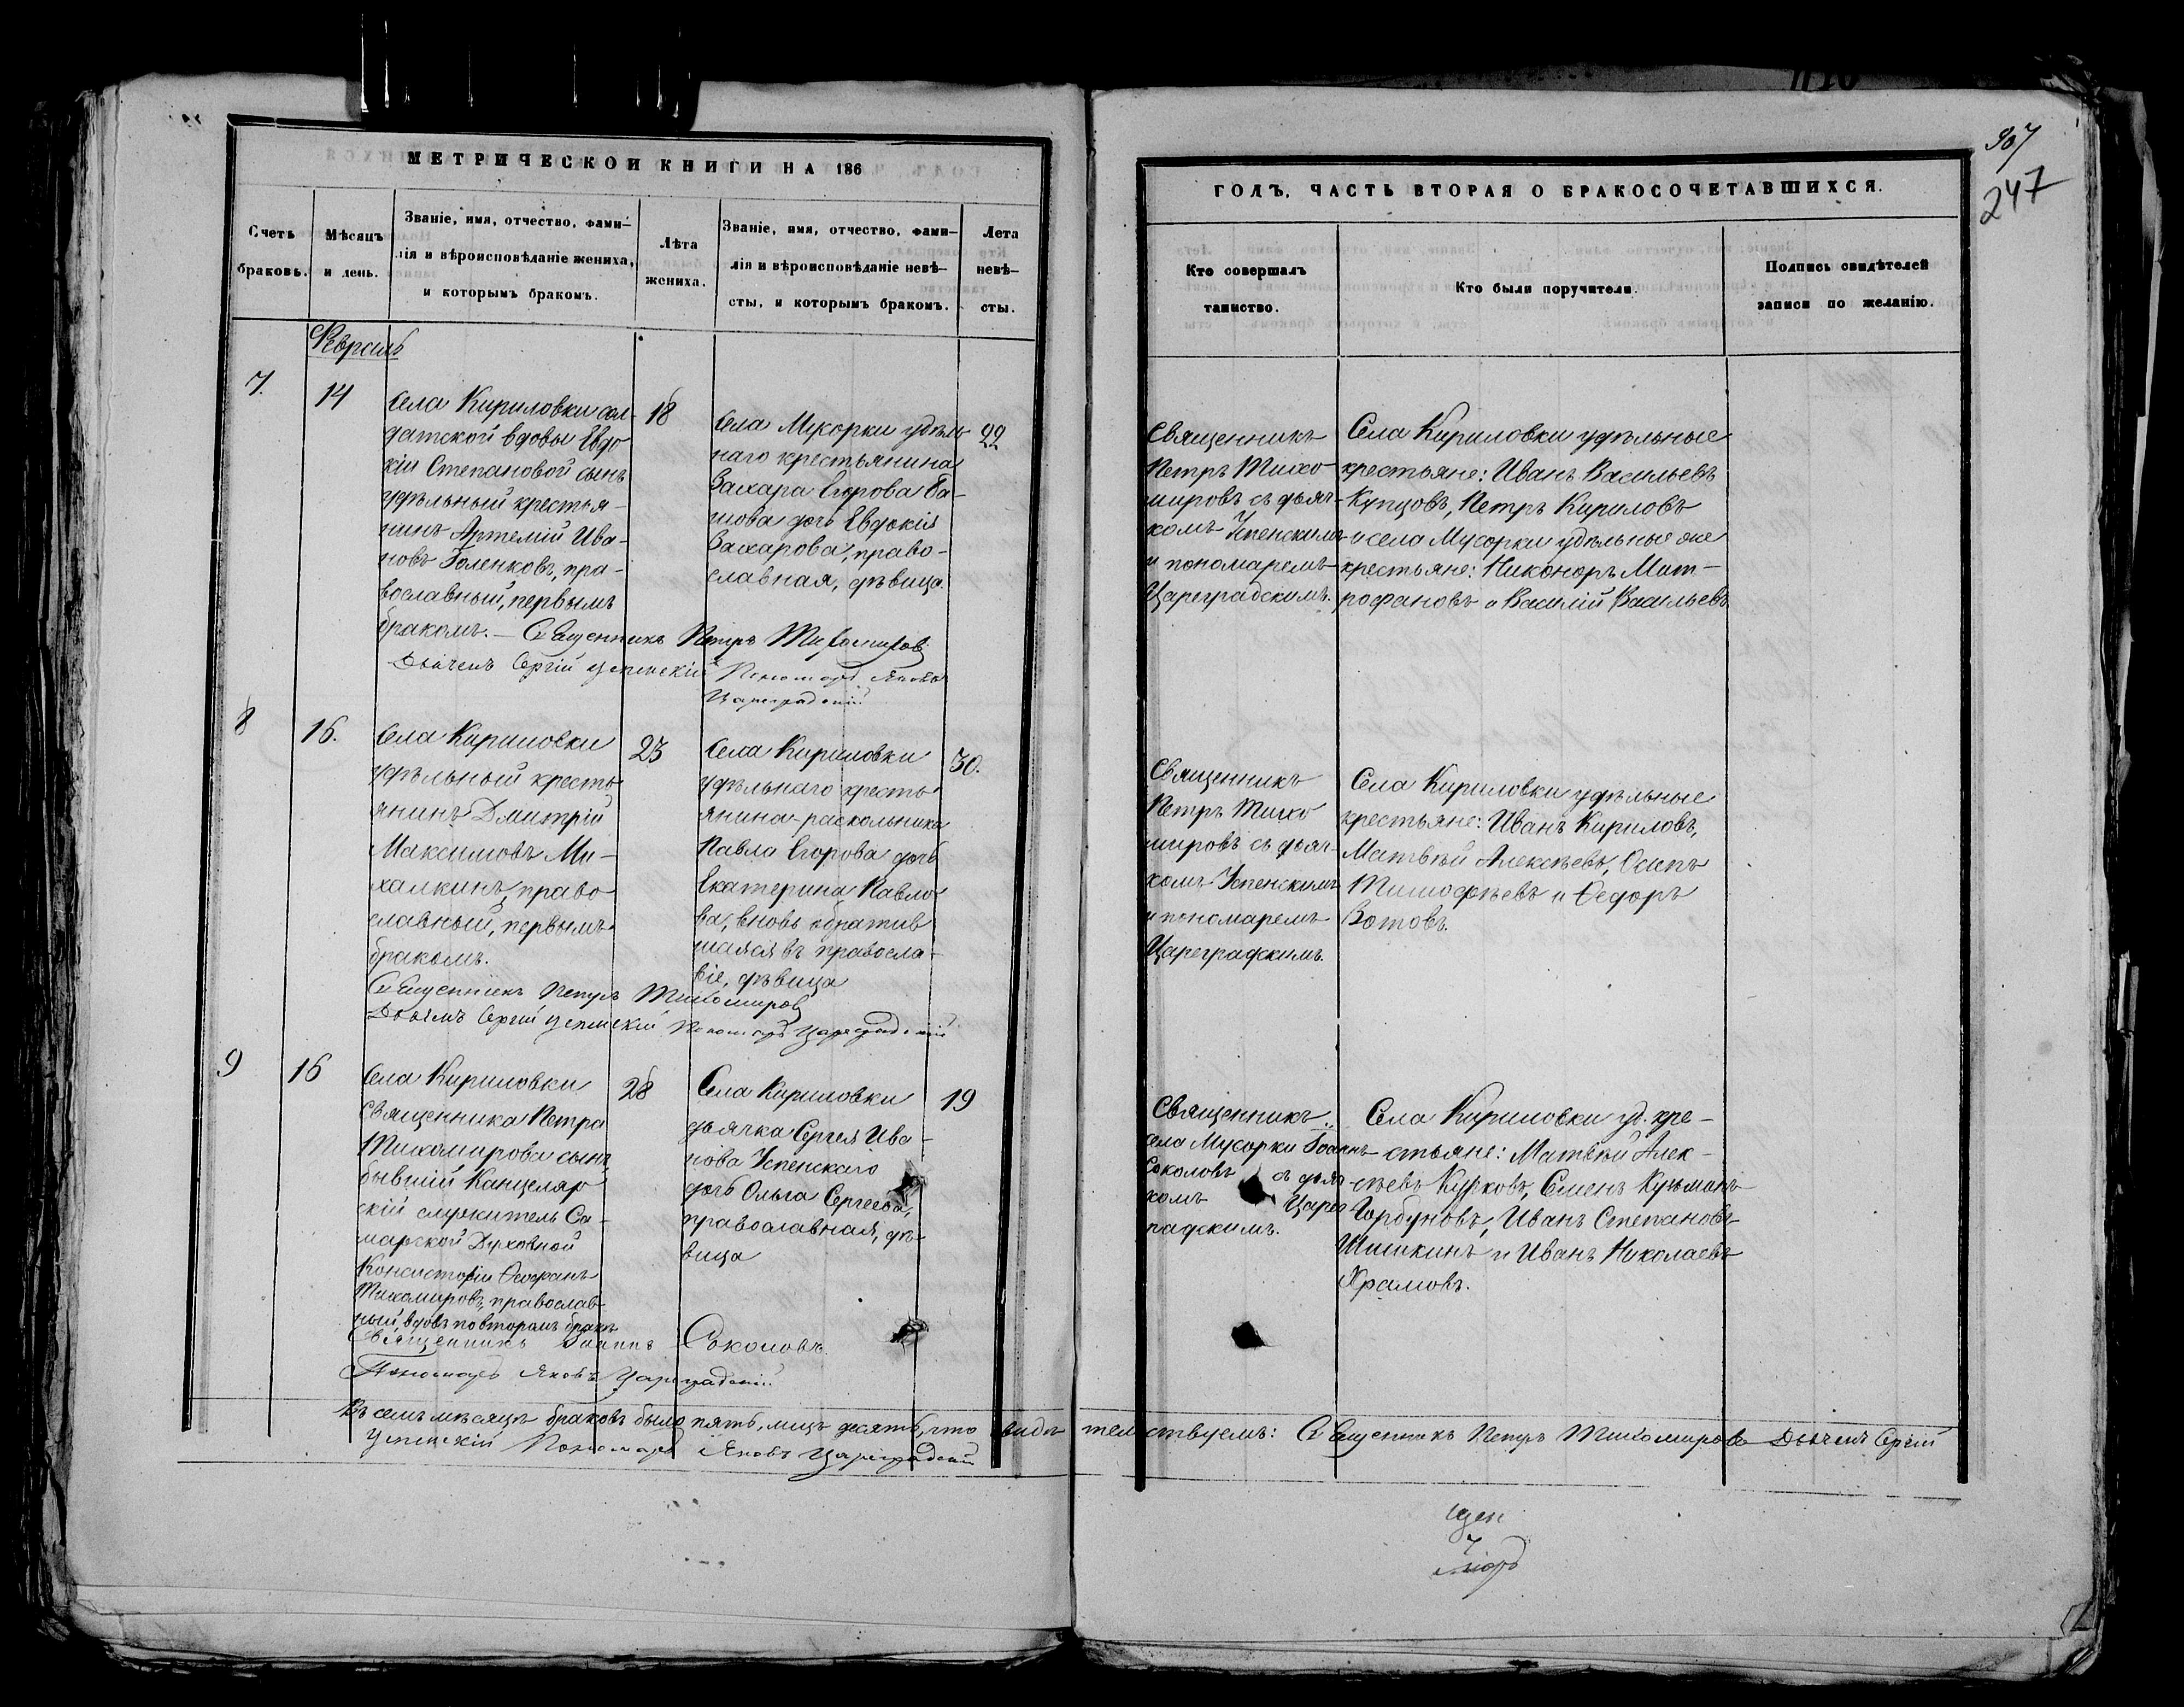 МЕТРИЧЕСКОЙ КНИГИ НА 186
Счетъ
браковъ.
Мѣсяцъ
и день.
Званіе, имя, отчество, фами-
лія и вѣроисповѣданіе жениха,
и которымъ бракомъ.
Лѣта
жениха.
Званіе, имя, отчество, фами-
лія и вѣроисповѣданіе невѣ-
сты, и которымъ бракомъ.
Лета
невѣ-
сты.
Февраль
7.
14
Села Кириловки сол-
датской вдовы Евдо
кіи Степановой сынъ
удѣльный крестья-
нинъ Артемій Ива-
новъ Голенковъ, пра-
вославный, первымъ
бракомъ. — Священникъ Петръ Тихомировъ
Дьячекъ Сергій Успенскій Пономарь Яковъ
Цареградскій
18
Села Мусорки удѣль
наго крестьянина
Захара Егорова Ба-
шова дочь Евдокія
Захарова, право-
славная, дѣвица.
22
8
16.
Села Кириловки
удѣльный кресть
янинъ Дмитрій
Максимовъ Ми-
халкинъ, право
славный, первымъ
бракомъ.
Священникъ Петръ Тихомировъ
Дьячекъ Сергій Успенскій Пономарь Цареградскій
23
Села Кириловки
удѣльнаго кресть
янина-раскольника
Павла Егорова дочь
Екатерина Павло
ва, вновь обратив
шаяся въ правосла-
віе, дѣвица
30.
9
16
Села Кириловки
Священника Петра
Тихомирова сынъ
бывшій Канцеляр
скій служитель Са-
марской Духовной
Консисторіи Феофанъ
Тихомировъ, православ-
ный, вдовъ по второмъ бракѣ
Священникъ Іоаннъ Соколовъ.
Пономарь Яковъ Цареградскій
28
Села Кириловки
дьячка Сергея Ива-
нова Успенскаго
дочь Ольга Сергеева,
православная, дѣ-
вица
19
Въ семъ мѣсяцѣ браковъ было пять, лицъ десять, что
Успенскій Пономарь Яковъ Цареградскій
907
247
ГОДЪ, ЧАСТЬ ВТОРАЯ О БРАКОСОЧЕТАВШИХСЯ.
Кто совершалъ
таинство.
Кто были поручители.
Подпись свидѣтелей
записи по желанію.
Священникъ
Петръ Тихо
мировъ съ дьяч-
комъ Успенскимъ
и пономаремъ
Цареградскимъ.
Села Кириловки удѣльные
крестьяне: Иванъ Васильевъ
Купцовъ, Петръ Кириловъ
и села Мусорки удѣльные же
крестьяне: Никоноръ Мит-
рофановъ и Василій Васильевъ
Священникъ
Петръ Тихо
мировъ съ дьяч-
комъ Успенскимъ
и пономаремъ
Цареградскимъ.
Села Кириловки удѣльные
крестьяне: Иванъ Кириловъ,
Матвѣй Алексѣевъ, Осипъ
Тимофѣевъ и Федоръ
Зотовъ.
Священникъ
села Мусорки Іоаннъ
Соколовъ съ дьяч
комъ Царег
радскимъ.
Села Кириловки уд. кре-
стьяне: Матвѣй Алек-
сѣевъ Курковъ, Семенъ Кузьминъ
Горбуновъ, Иванъ Степановъ
Шишкинъ и Иванъ Николаевъ
Храмовъ.
тельствуемъ: Священникъ Петръ Тихомировъ Дьячекъ Сергій